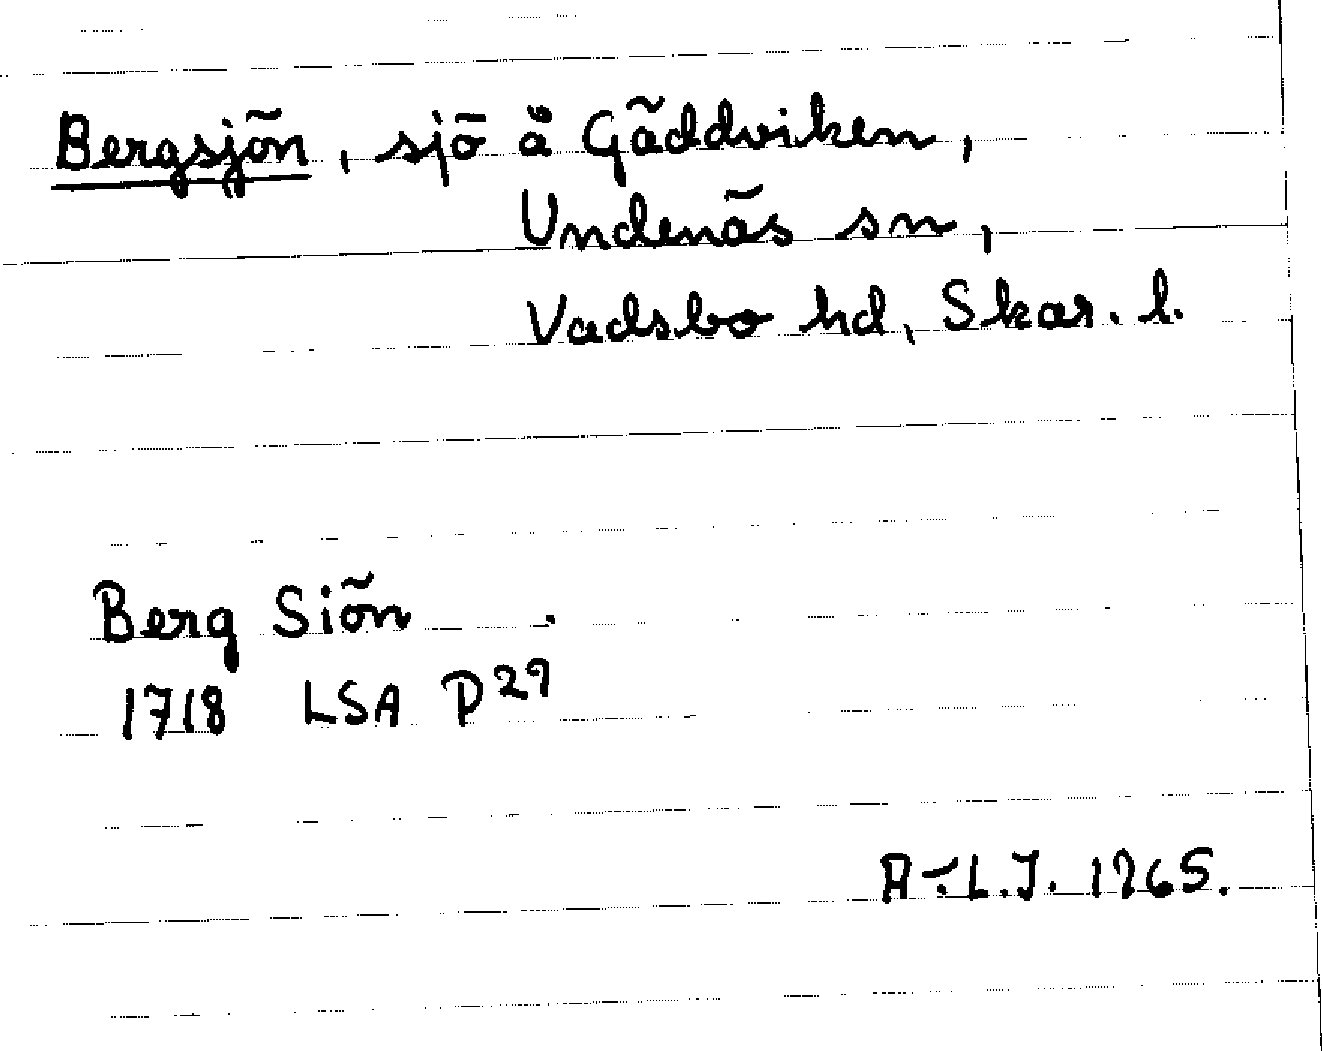 Bergsjön, sjö å Gäddviken,
Undenäs sn,
Vadsbo hd, Skar. l.
Berg Siön
1718 LSA P29
A-.L.J. 1965.